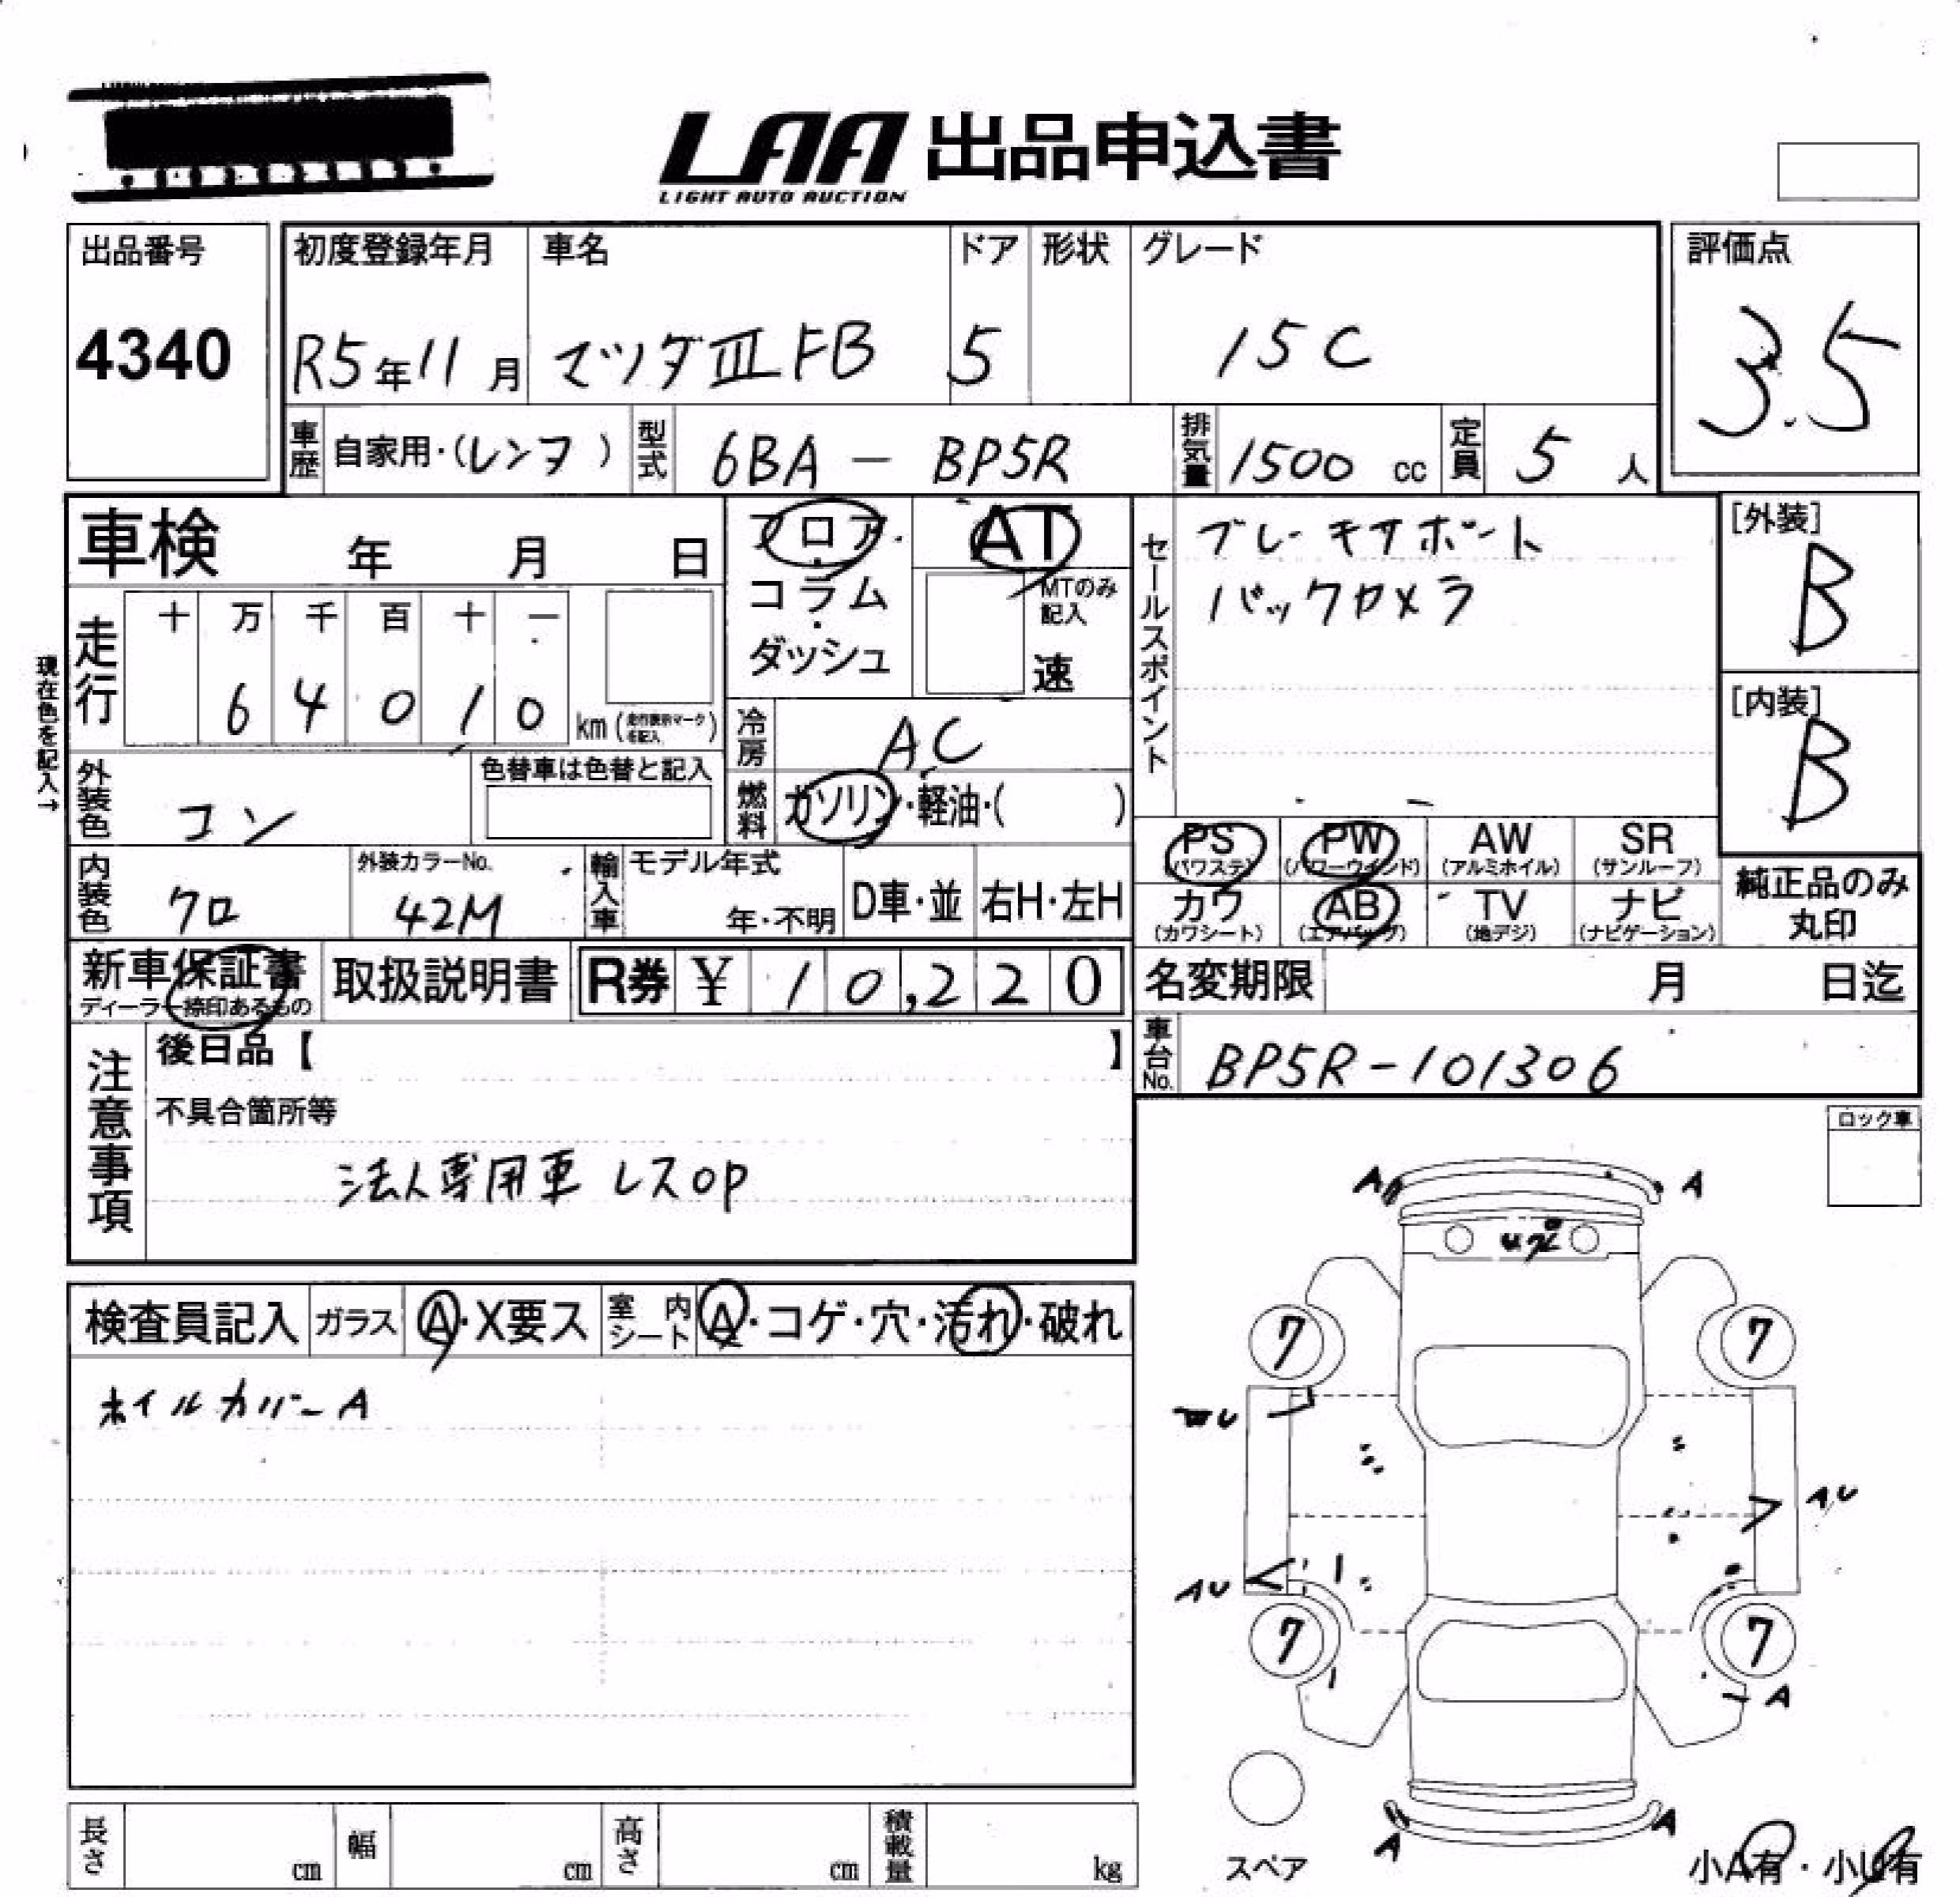 LAA 出品申込書
LIGHT AUTO AUCTION
出品番号
4340
初度登録年月
R5年11月
車名
マツダⅢFB
ドア
5
形状
グレード
15C
評価点
3.5
車歴
自家用・(レンタ)
型式
6BA - BP5R
排気量
1500 cc
定員
5人
車検 年 月 日
フロア・
コラム
・
ダッシュ
AT
MTのみ
記入
速
セールスポイント
ブレーキサポート
バックカメラ
[外装]
B
[内装]
B
現在色を記入→
走行
十 万 千 百 十 一
6 4 0 1 0 km(走行表示マークを記入)
冷房
AC
燃料
ガソリン・軽油・( )
外装色
コン
色替車は色替と記入
内装色
クロ
外装カラーNo.
42M
輸入車
モデル年式
年・不明
D車・並
右H・左H
PS
(パワステ)
PW
(パワーウインド)
AW
(アルミホイル)
SR
(サンルーフ)
カワ
(カワシート)
AB
(エアバッグ)
TV
(地デジ)
ナビ
(ナビゲーション)
純正品のみ
丸印
新車保証書
ディーラー捺印あるもの
取扱説明書
R券 ¥ 10,220
名変期限 月 日迄
車台No.
BP5R-101306
注意事項
後日品【 】
不具合箇所等
法人専用車 レスOP
ロック車
検査員記入
ガラス
A・X要ス
室内シート
A・コゲ・穴・汚れ・破れ
ホイルカバーA
A
A
7
7
U
AU
AU
7
7
A
A
A
スペア
小A有・小U有
長さ
cm
幅
cm
高さ
cm
積載量
kg